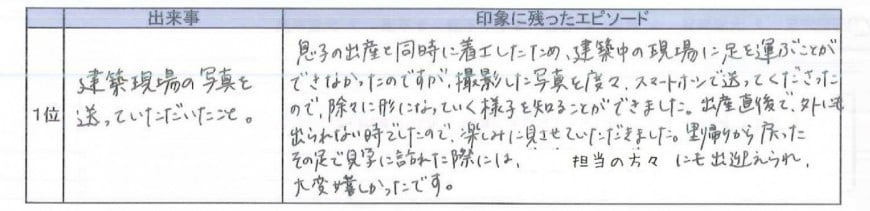 出来事
印象に残ったエピソード
1位
建築現場の写真を
送っていただいたこと。
息子の出産と同時に着工したため、建築中の現場に足を運ぶことが
できなかったのですが、撮影した写真を度々、スマートホンで送ってくださった
ので、除々に形になっていく様子を知ることができました。出産直後で、外にも
出られない時でしたので、楽しみに見させていただきました。里帰りから戻った
その足で見学に訪れた際には、 担当の方々にも出迎えられ、
大変嬉しかったです。